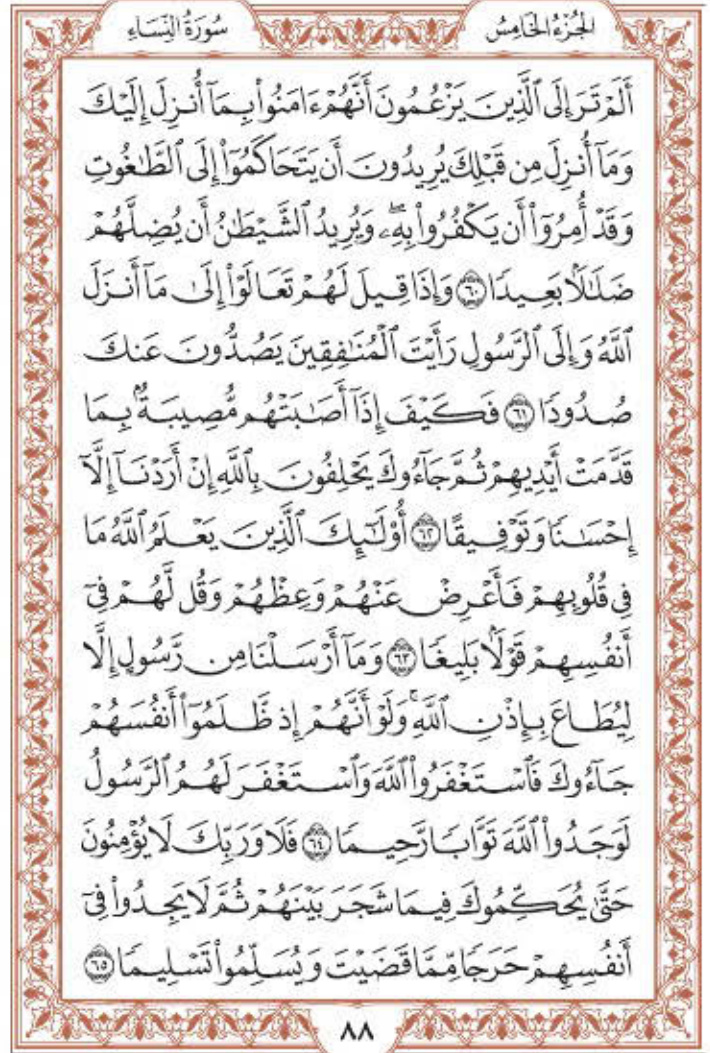 الجُزْءُ الخَامِسُ
سُورَةُ النِّسَاءِ
أَلَمْ تَرَ إِلَى ٱلَّذِينَ يَزْعُمُونَ أَنَّهُمْ ءَامَنُوا۟ بِمَآ أُنزِلَ إِلَيْكَ
وَمَآ أُنزِلَ مِن قَبْلِكَ يُرِيدُونَ أَن يَتَحَاكَمُوٓا۟ إِلَى ٱلطَّٰغُوتِ
وَقَدْ أُمِرُوٓا۟ أَن يَكْفُرُوا۟ بِهِۦۖ وَيُرِيدُ ٱلشَّيْطَٰنُ أَن يُضِلَّهُمْ
ضَلَٰلًۢا بَعِيدًا ٦٠ وَإِذَا قِيلَ لَهُمْ تَعَالَوْا۟ إِلَىٰ مَآ أَنزَلَ
ٱللَّهُ وَإِلَى ٱلرَّسُولِ رَأَيْتَ ٱلْمُنَٰفِقِينَ يَصُدُّونَ عَنكَ
صُدُودًا ٦١ فَكَيْفَ إِذَآ أَصَٰبَتْهُم مُّصِيبَةٌۢ بِمَا
قَدَّمَتْ أَيْدِيهِمْ ثُمَّ جَآءُوكَ يَحْلِفُونَ بِٱللَّهِ إِنْ أَرَدْنَآ إِلَّآ
إِحْسَٰنًا وَتَوْفِيقًا ٦٢ أُو۟لَٰٓئِكَ ٱلَّذِينَ يَعْلَمُ ٱللَّهُ مَا
فِى قُلُوبِهِمْ فَأَعْرِضْ عَنْهُمْ وَعِظْهُمْ وَقُل لَّهُمْ فِىٓ
أَنفُسِهِمْ قَوْلًۢا بَلِيغًا ٦٣ وَمَآ أَرْسَلْنَا مِن رَّسُولٍ إِلَّا
لِيُطَاعَ بِإِذْنِ ٱللَّهِۚ وَلَوْ أَنَّهُمْ إِذ ظَّلَمُوٓا۟ أَنفُسَهُمْ
جَآءُوكَ فَٱسْتَغْفَرُوا۟ ٱللَّهَ وَٱسْتَغْفَرَ لَهُمُ ٱلرَّسُولُ
لَوَجَدُوا۟ ٱللَّهَ تَوَّابًا رَّحِيمًا ٦٤ فَلَا وَرَبِّكَ لَا يُؤْمِنُونَ
حَتَّىٰ يُحَكِّمُوكَ فِيمَا شَجَرَ بَيْنَهُمْ ثُمَّ لَا يَجِدُوا۟ فِىٓ
أَنفُسِهِمْ حَرَجًا مِّمَّا قَضَيْتَ وَيُسَلِّمُوا۟ تَسْلِيمًا ٦٥
٨٨